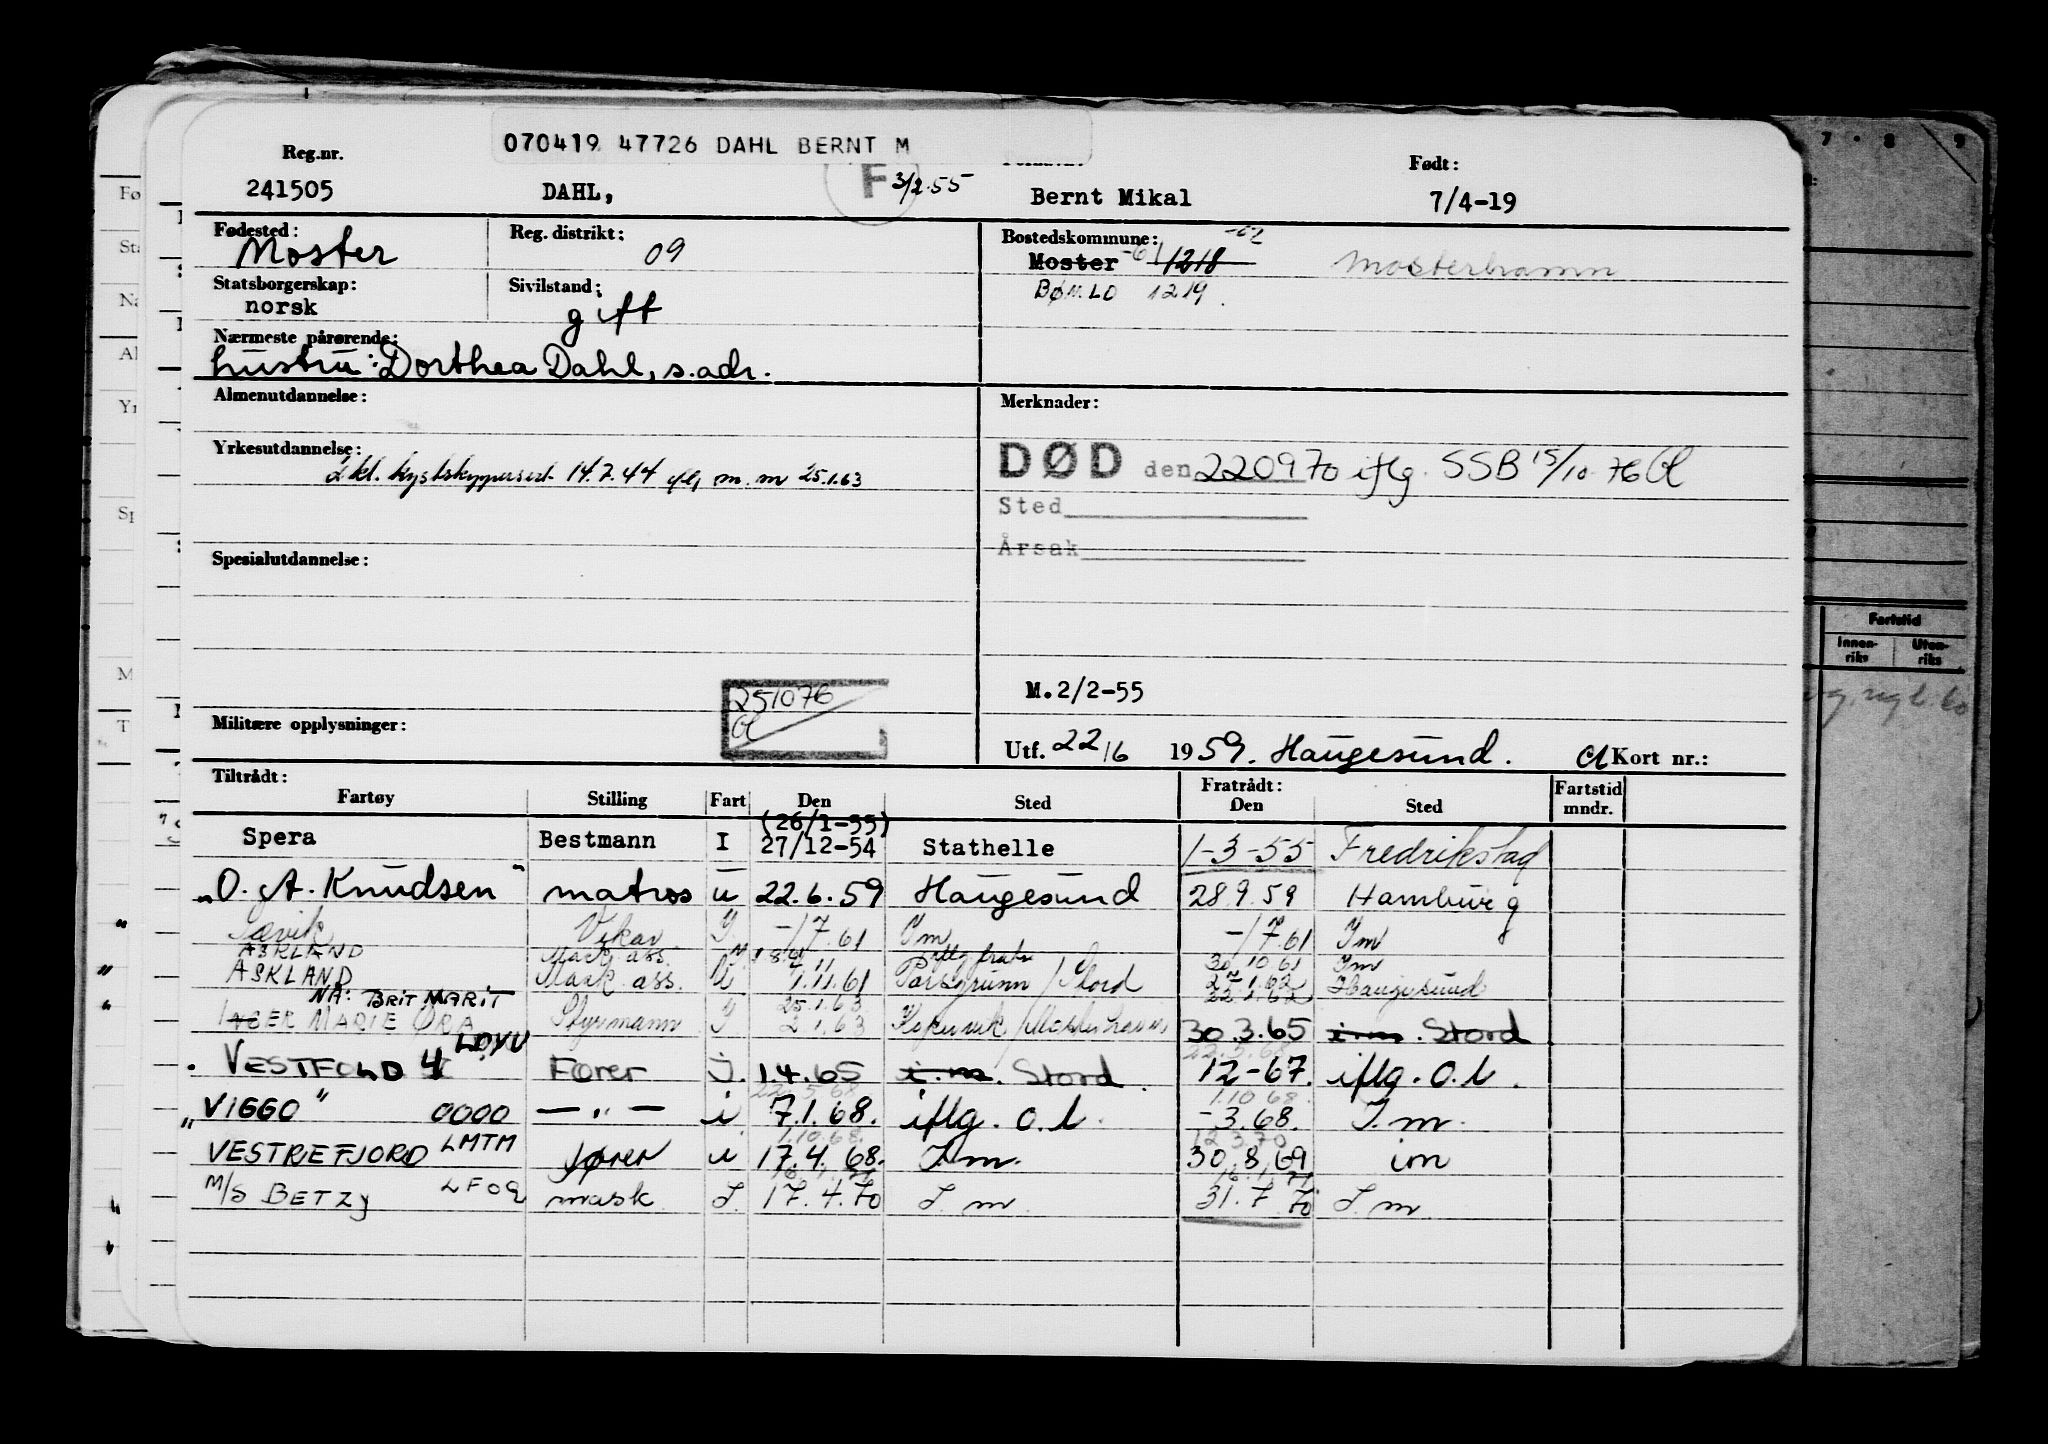 070419 47726 DAHL BERNT M
Reg.nr. Født:
241505 DAHL, F 3/2.55 Bernt Mikal 7/4-19
Fødested: Reg. distrikt: Bostedskommune:
Moster 09 Moster -61 1218 -62 Mosterhamn
Statsborgerskap: Sivilstand:
norsk gift BØMLO 1219
Nærmeste pårørende:
hustru: Dorthea Dahl, s.adr.
Almenutdannelse: Merknader:
Yrkesutdannelse:
14.7.44 m.m 25.1.63
DØD den 220970 iflg. SSB 15/10-76
Sted
Årsak
Spesialutdannelse:
M.2/2-55
251076
Militære opplysninger:
Utf. 22/6 1959. Haugesund. Kort nr.:
Tiltrådt: Fratrådt:
Fartøy Stilling Fart Den Sted Den Sted Fartstid mndr.
(26/1-55)
Spera Bestmann I 27/12-54 Stathelle 1-3-55 Fredrikstad
"O. A. Knudsen" matros u 22.6.59 Haugesund 28 9.59 Hamburg
Sævik Vikar I -/7.61 Im -/7.61 Im
ASKLAND Mask ass. 30.10.61 Im
ASKLAND Mask ass. U 1.11.61 Porsgrunn / Stord 22.1.62 Haugesund
NÅ: BRIT MARIT 25.1.63
INGER MARIE ØRA Styrmann I 2.1.63 30.3.65 i.m. Stord
LDVU 22.5.68
VESTFOLD 4 Fører I. 1.4.65 i.m. Stord. 12-67. iflg. o.l.
22.5.68 1.10 68.
"VIGGO" 0000 — " — i 7.1.68. iflg. o.l. -3.68. I.m.
1.10.68. 12.3.70
VESTREFJORD LMTM fører i 17.4.68. I.m. 30.8.69 im
M/S BETZY LFOQ mask I. 17.4.70 I.m. 31.7.70 I.m.
Fartstid
Innen-riks Uten-riks